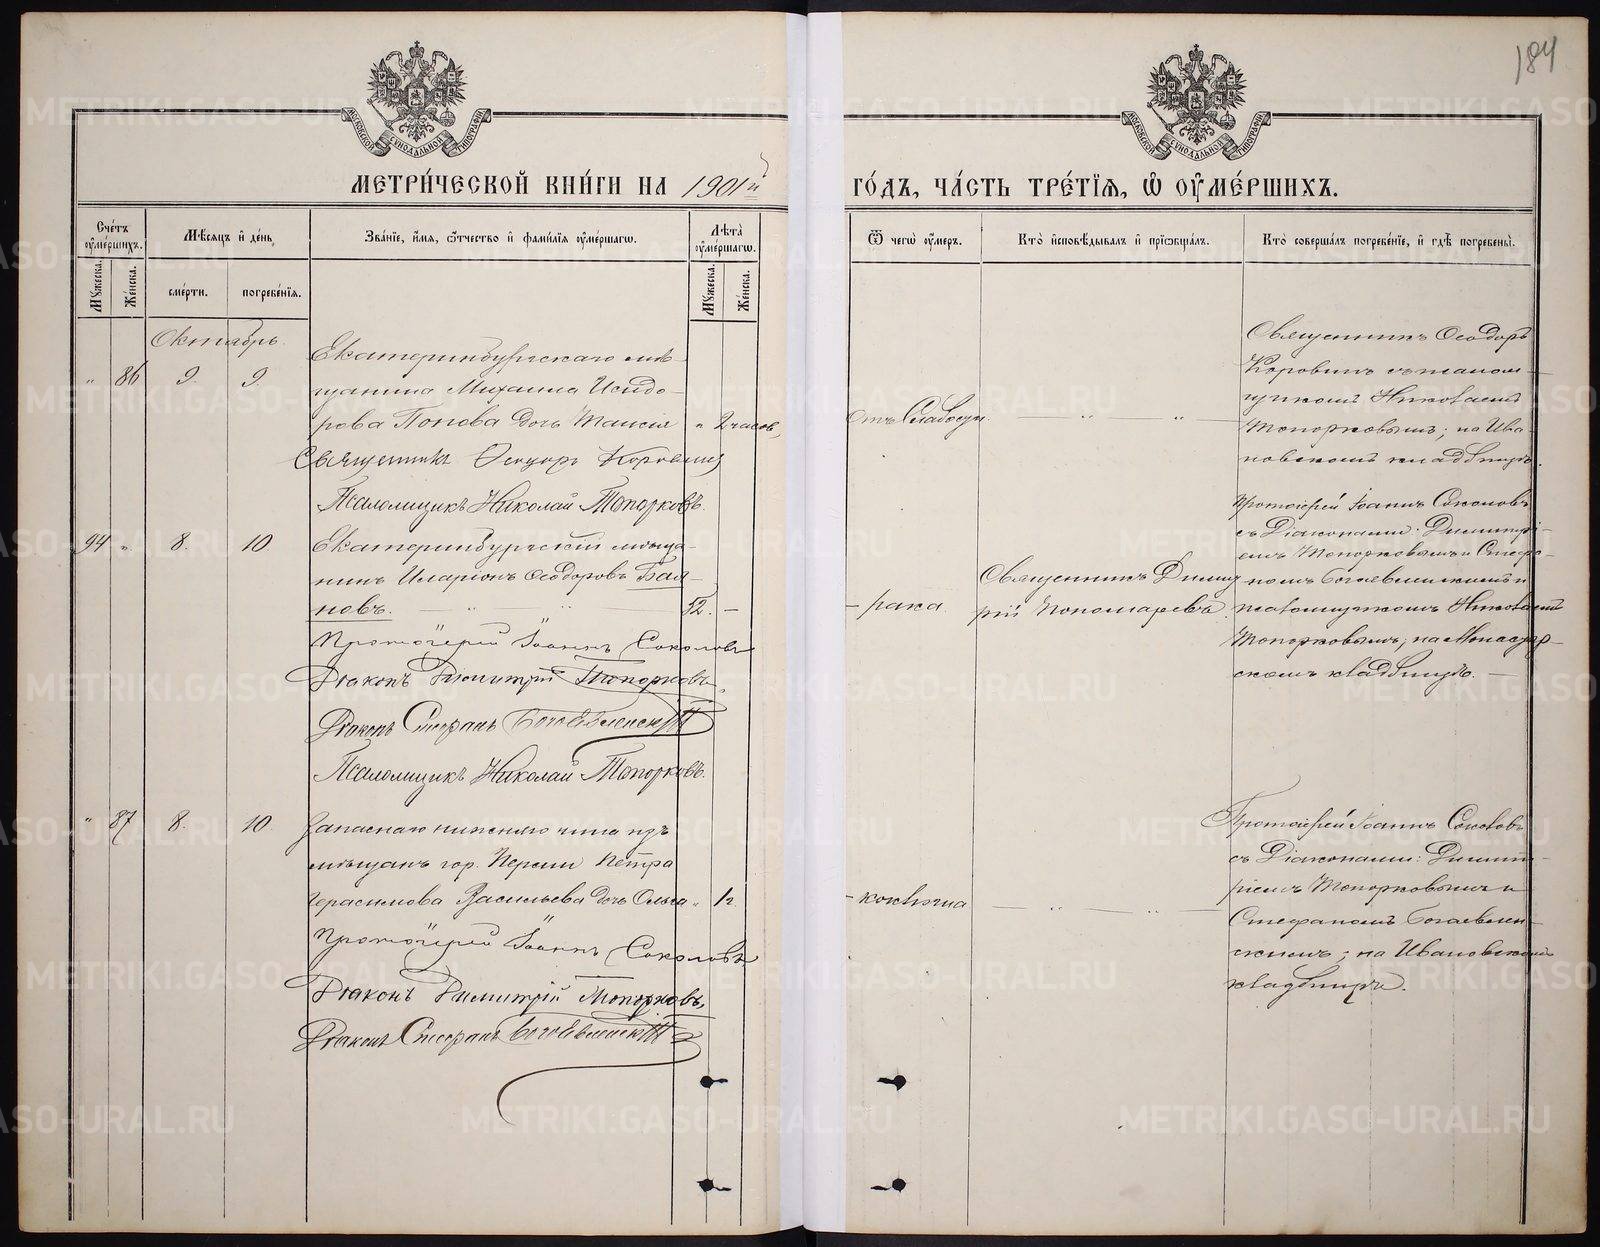 184
МОСКОВСКОЙ СѴНОДАЛЬНОЙ ТИПОГРАФІИ
МОСКОВСКОЙ СѴНОДАЛЬНОЙ ТИПОГРАФІИ
МЕТРИ́ЧЕСКОЙ КНИ́ГИ НА 1901й ГО́ДЪ, ЧА́СТЬ ТРЕ́ТІѦ, Ѡ҆ ОУ҆МЕ́РШИХЪ.
Сче́тъ оу҆ме́ршихъ.
Мѣ́сяцъ и҆ де́нь
Зва́нїе, и҆́мя, ѻ҆́тчество и҆ фами́лїя оу҆ме́ршагѡ.
Лѣ́та оу҆ме́ршагѡ.
Ѿ чегѡ̀ оу҆́меръ.
Кто̀ и҆сповѣ́дывалъ и҆ прїѡбща́лъ.
Кто̀ соверша́лъ погребе́нїе, и҆ гдѣ̀ погребены̀.
Мꙋ́жеска.
Же́нска.
сме́рти.
погребе́нїя.
Мꙋ́жеска.
Же́нска.
Октябрь.
" 86 9. 9.
Екатеринбургскаго мѣ-
щанина Михаила Исидо-
рова Попова дочь Таисія " 2 часов,
Священникъ Ѳеодоръ Коровинъ
Псаломщикъ Николай Топорковъ.
отъ слабости.
Священникъ Ѳеодоръ
Коровинъ съ псалом-
щикомъ Николаемъ
Топорковымъ; на Ива-
новскомъ кладбищѣ.
94 " 8. 10.
Екатеринбургскій мѣща-
нинъ Иларіонъ Ѳеодоровъ Бая-
новъ. 52. —
Протоіерей Іоаннъ Соколовъ
Діаконъ Димитрій Топорковъ.
Діаконъ Стефанъ Богоявленскій
Псаломщикъ Николай Топорковъ.
— рака
Священникъ Димит
рій Пономаревъ.
Протоіерей Іоаннъ Соколовъ
съ Діаконами: Димитрі-
емъ Топорковымъ и Стефа-
номъ Богоявленскимъ и
псаломщикомъ Николаемъ
Топорковымъ; на Монастыр-
скомъ кладбищѣ. —
" 87 8. 10.
Запаснаго нижняго чина изъ
мѣщанъ гор. Перми Петра
Герасимова Васильева дочь Ольга " 1г.
Протоіерей Іоаннъ Соколовъ
Діаконъ Димитрій Топорковъ,
Діаконъ Стефанъ Богоявленскій
— коклюша
Протоіерей Іоаннъ Соколовъ
съ Діаконами: Димит-
ріемъ Топорковымъ и
Стефаномъ Богоявлен-
скимъ; на Ивановскомъ
кладбищѣ.
METRIKI.GASO-URAL.RU